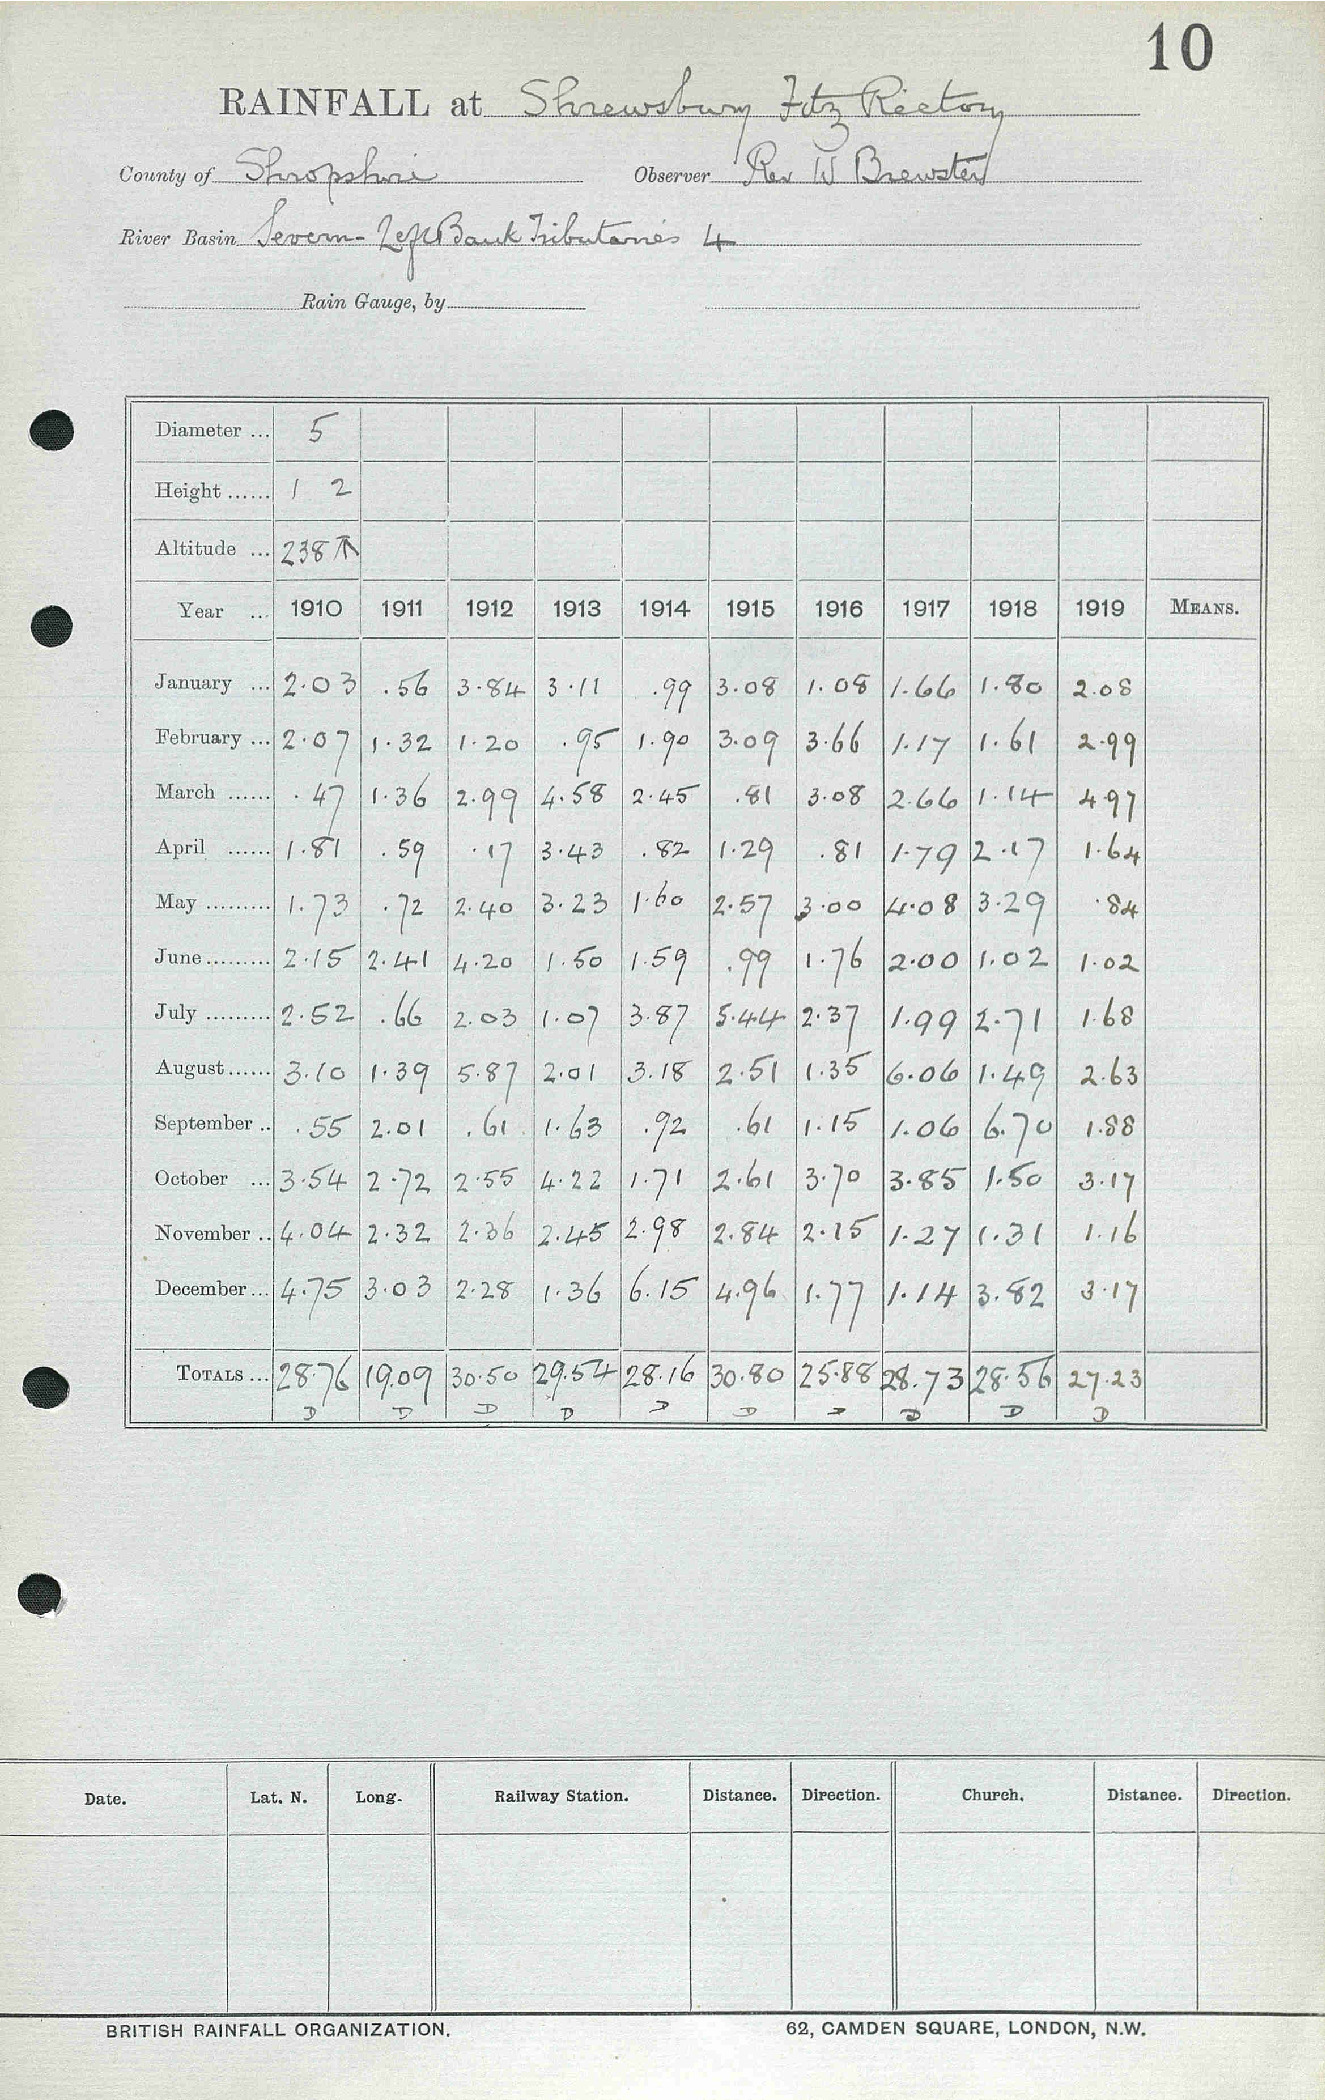 10
RAINFALL at Shrewsbury Fitz Rectory
County of Shropshire Observer Rev W Brewster
River Basin Severn - Left Bank Tributaries 4
Rain Gauge, by
Diameter ... 5
Height ...... 1 2
Altitude ... 238 ↑
Year ... 1910 1911 1912 1913 1914 1915 1916 1917 1918 1919 MEANS.
January ... 2.03 .56 3.84 3.11 .99 3.08 1.08 1.66 1.80 2.08
February ... 2.07 1.32 1.20 .95 1.90 3.09 3.66 1.17 1.61 2.99
March ...... .47 1.36 2.99 4.58 2.45 .81 3.08 2.66 1.14 4.97
April ...... 1.81 .59 .17 3.43 .82 1.29 .81 1.79 2.17 1.64
May ......... 1.73 .72 2.40 3.23 1.60 2.57 3.00 4.08 3.29 .84
June ......... 2.15 2.41 4.20 1.50 1.59 .99 1.76 2.00 1.02 1.02
July ......... 2.52 .66 2.03 1.07 3.87 5.44 2.37 1.99 2.71 1.68
August ...... 3.10 1.39 5.87 2.01 3.18 2.51 1.35 6.06 1.49 2.63
September .. .55 2.01 .61 1.63 .92 .61 1.15 1.06 6.70 1.88
October ... 3.54 2.72 2.55 4.22 1.71 2.61 3.70 3.85 1.50 3.17
November .. 4.04 2.32 2.36 2.45 2.98 2.84 2.15 1.27 1.31 1.16
December ... 4.75 3.03 2.28 1.36 6.15 4.96 1.77 1.14 3.82 3.17
TOTALS ... 28.76 19.09 30.50 29.54 28.16 30.80 25.88 28.73 28.56 27.23
D D D D D D D D D D
Date. Lat. N. Long. Railway Station. Distance. Direction. Church. Distance. Direction.
BRITISH RAINFALL ORGANIZATION. 62, CAMDEN SQUARE, LONDON, N.W.